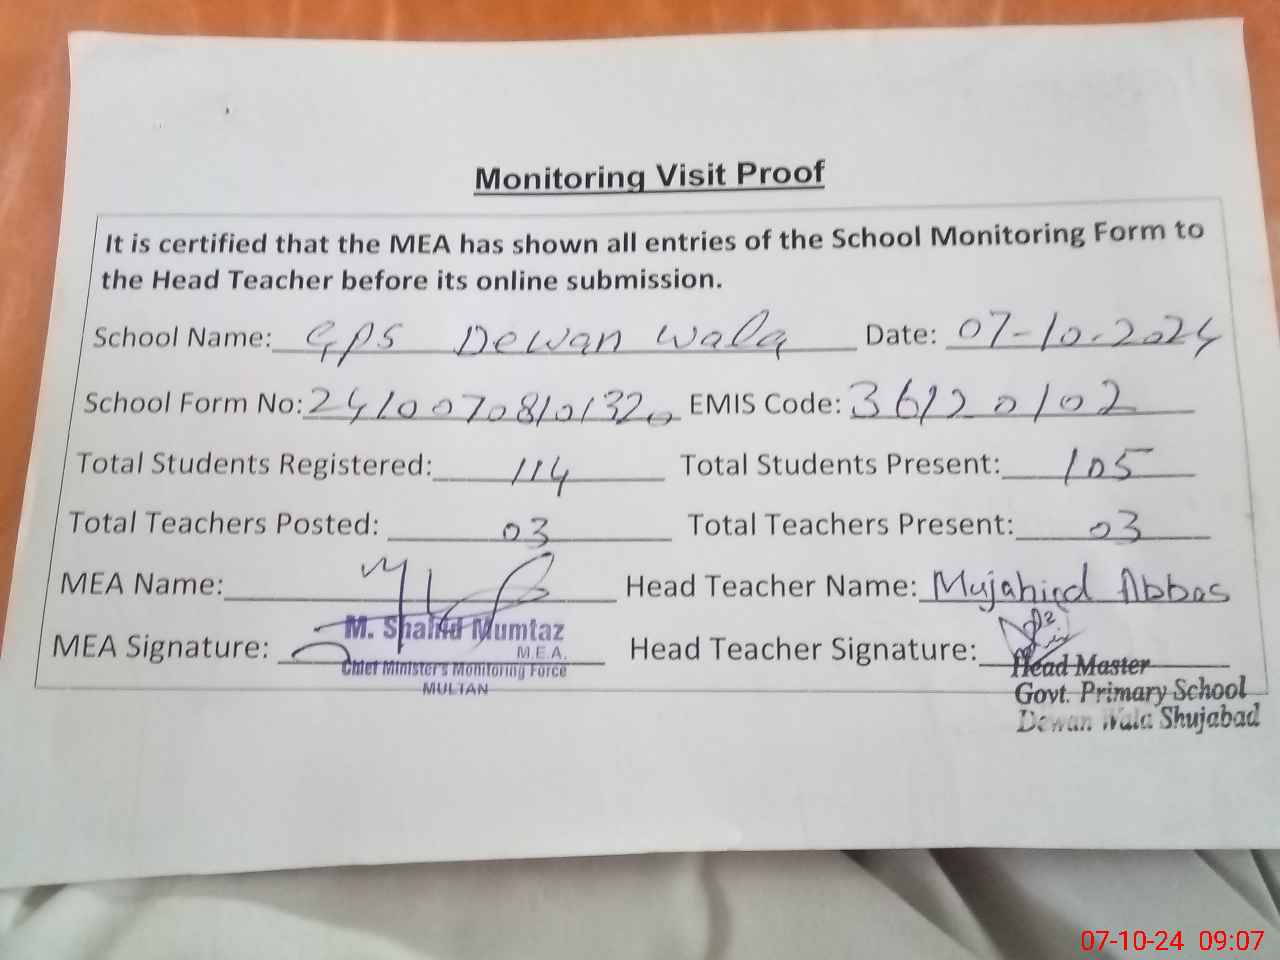 Monitoring Visit Proof
It is certified that the MEA has shown all entries of the School Monitoring Form to
the Head Teacher before its online submission.
School Name: GPS Dewan Wala Date: 07-10-2024
School Form No: 2410070810132 EMIS Code: 36120102
Total Students Registered: 114 Total Students Present: 105
Total Teachers Posted: 03 Total Teachers Present: 03
MEA Name: Head Teacher Name: Mujahid Abbas
MEA Signature: M. Shahid Mumtaz Head Teacher Signature:
M.E.A.
Chief Minister's Monitoring Force
MULTAN
Head Master
Govt. Primary School
Dewan Wala Shujabad
07-10-24 09:07